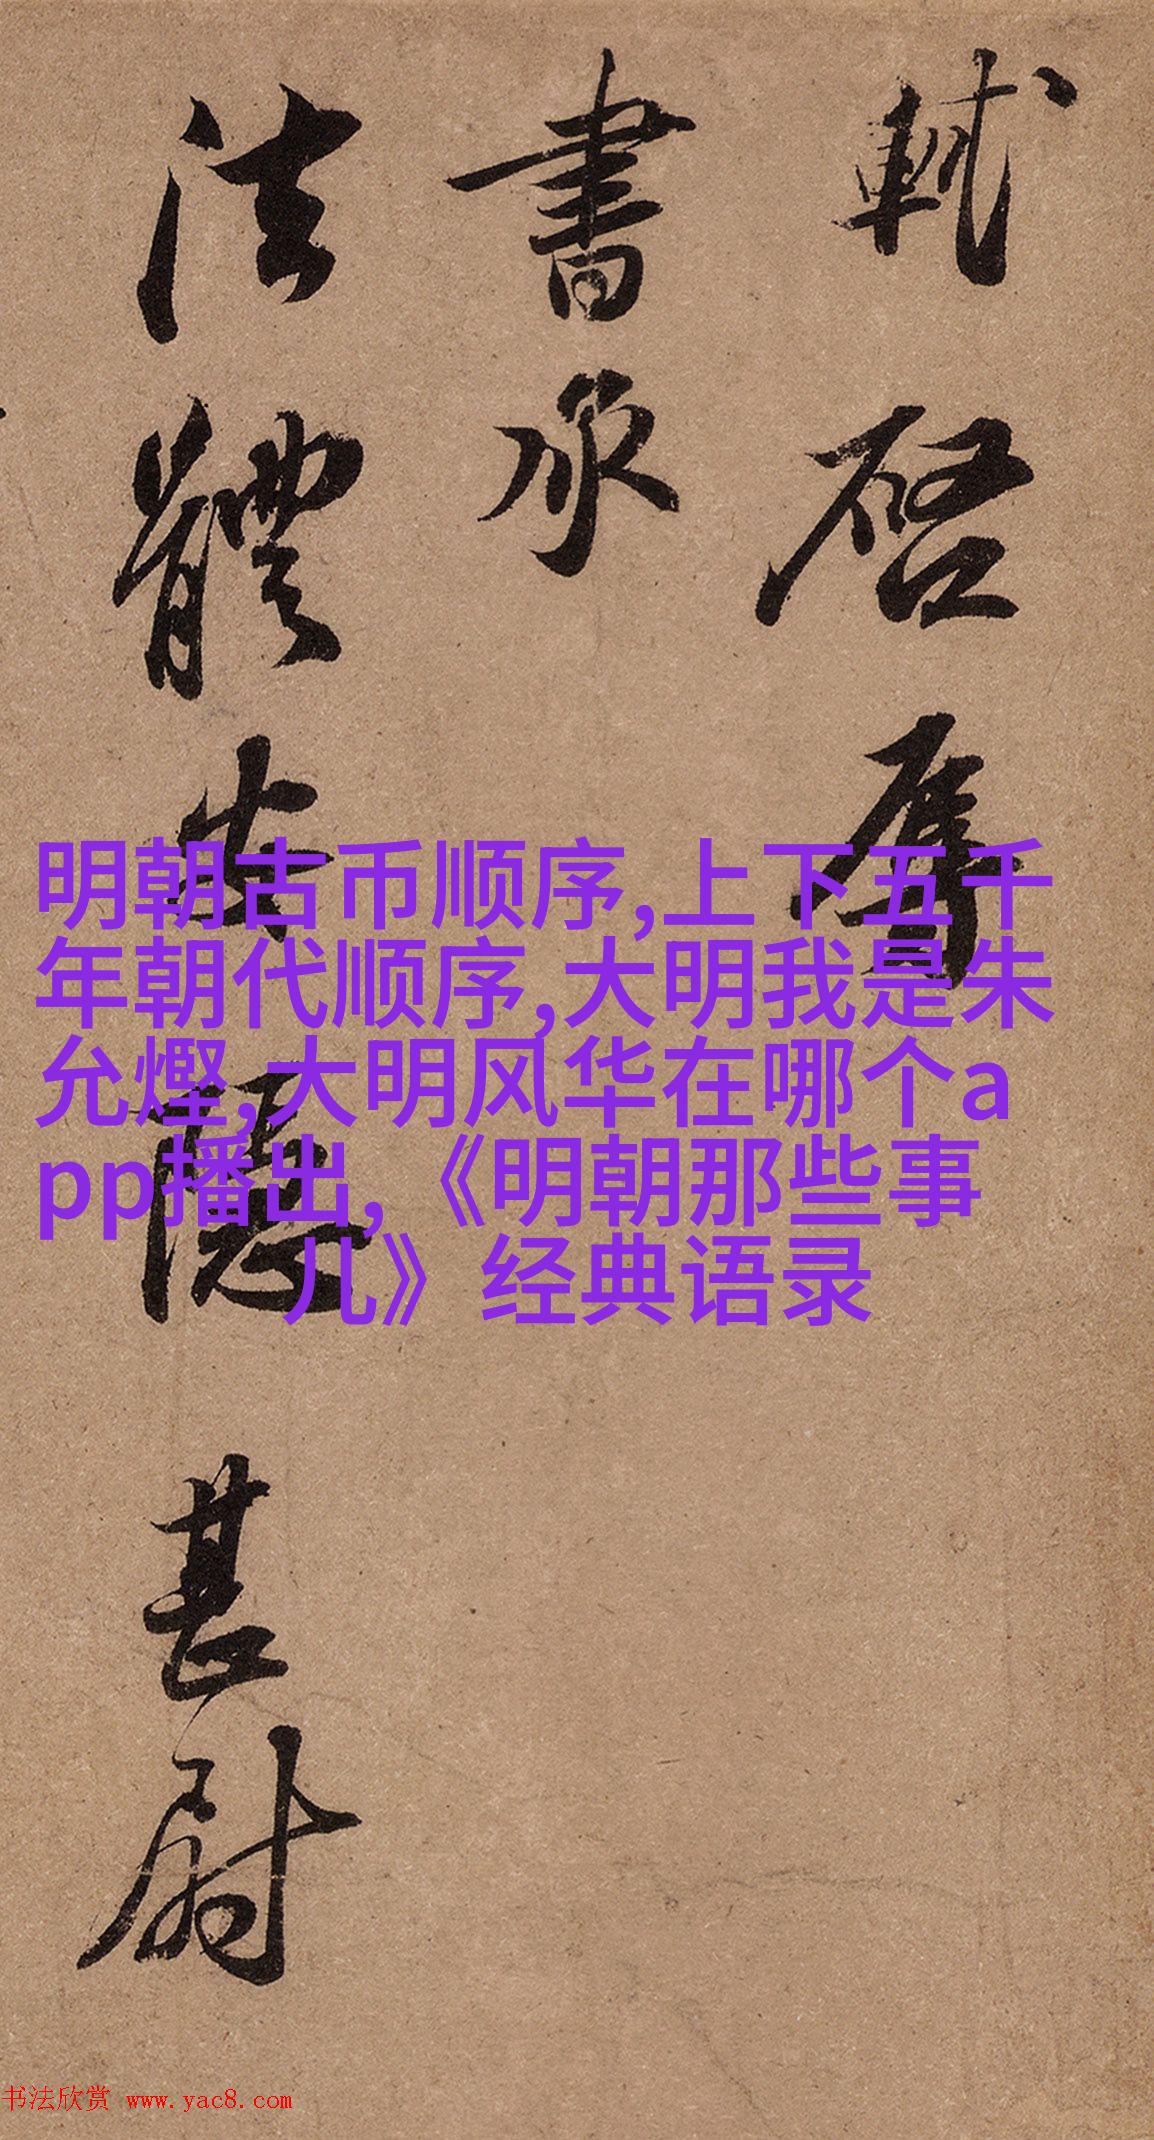 軾啓辱
書承
法體安隱甚慰
明朝古币顺序,上下五千
年朝代顺序,大明我是朱
允熞,大明风华在哪个a
pp播出,《明朝那些事
儿》经典语录
书法欣赏 www.yac8.com